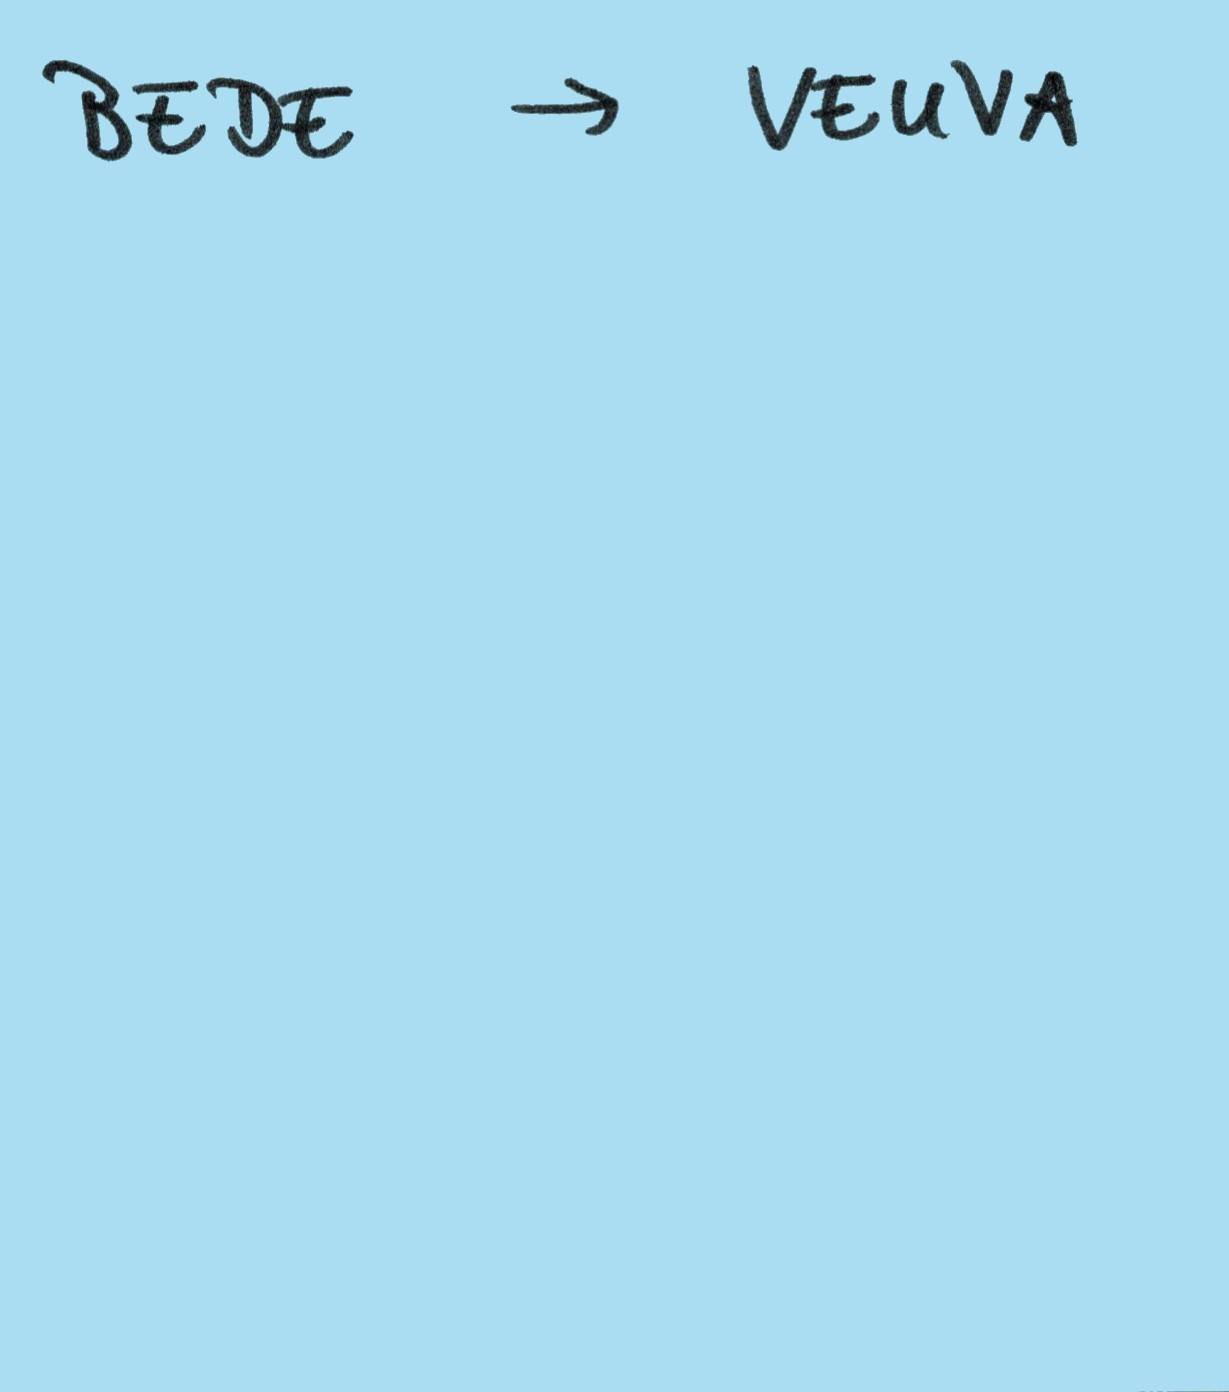 BEDE → VEUVA